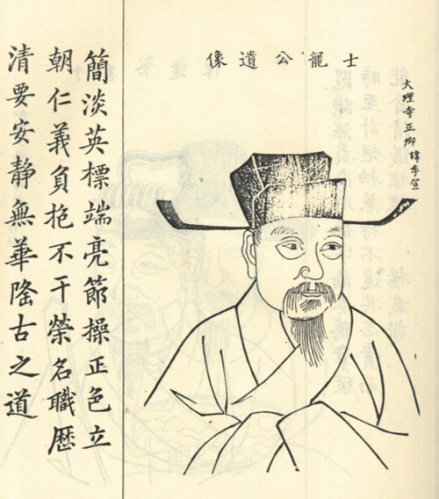 士龍公遺像
大理寺正卿諱
簡淡英標端亮節操正色立
朝仁義負抱不干榮名職歷
清要安靜無華隆古之道